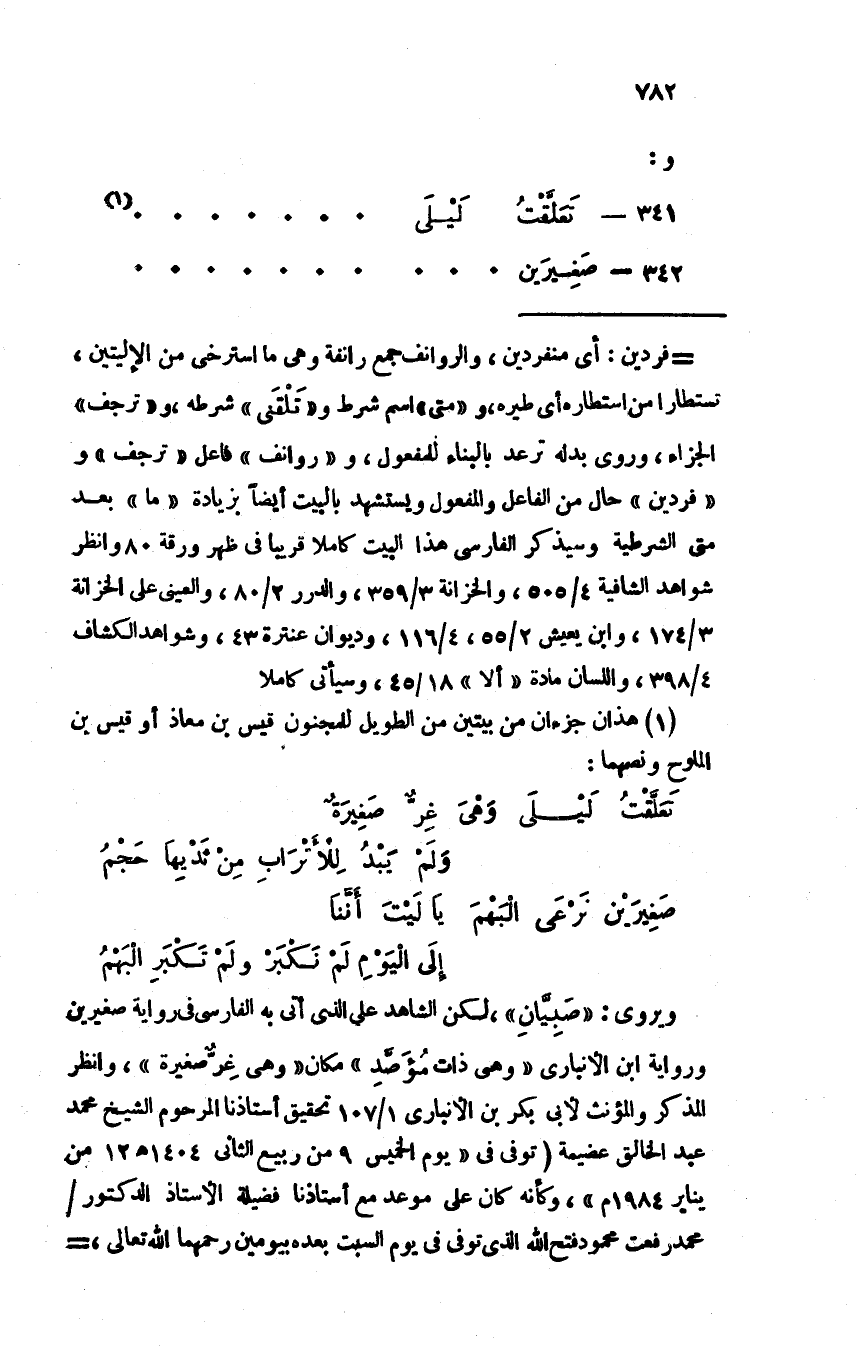 ٧٨٢
و :
٣٤١ — تَعَلَّقْتُ لَيْلَى . . . . . . . (١)
٣٤٢ — صَغِيرَين . . . . . . . . . .
=فردين : أى منفردين ، والروانف جمع رانفة وهى ما استرخى من الإليتين ،
تستطارا من استطاره أى طيره ،و «متى» اسم شرط و« تَلْقَنى » شرطه ،و« ترجف»
الجزاء ، وروى بدله ترعد بالبناء للمفعول ، و « روانف » فاعل « ترجف » و
« فردين » حال من الفاعل والمفعول ويستشهد بالبيت أيضاً بزيادة « ما » بعد
متى الشرطية وسيذكر الفارسى هذا البيت كاملا قريبا فى ظهر ورقة ٨٠ وانظر
شواهد الشافية ٥٠٥/٤ ، والخزانة ٣٥٩/٣ ، والدرر ٨٠/٢ ، والعينى على الخزانة
١٧٤/٣ ، وابن يعيش ٥٥/٢ ، ١١٦/٤ ، وديوان عنترة ٤٣ ، وشواهد الكشاف
٣٩٨/٤ ، واللسان مادة « ألا » ٤٥/١٨ ، وسيأتى كاملا
(١) هذان جزءان من بيتين من الطويل للمجنون قيس بن معاذ أو قيس بن
الملوح ونصهما :
تَعَلَّقْتُ لَيْلَى وَهْىَ غِرٌّ صَغِيرَةٌ
وَلَمْ يَبْدُ لِلْأَتْرَابِ مِنْ ثَدْيِهَا حَجْمُ
صَغِيرَيْنِ نَرْعَى الْبَهْمَ يَا لَيْتَ أَنَّنَا
إِلَى الْيَوْمِ لَمْ نَكْبَرْ ولَمْ تَكْبَرِ الْبَهْمُ
ويروى : «صَبِيَّانِ» ،لكن الشاهد على الذى أتى به الفارسى فى رواية صغيرين
ورواية ابن الانبارى « وهى ذات مُؤَصَّدٍ » مكان« وهى غِرٌّ صغيرة » ، وانظر
المذكر والمؤنث لابى بكر بن الانبارى ١٠٧/١ تحقيق أستاذنا المرحوم الشيخ محمد
عبد الخالق عضيمة ( توفى فى « يوم الخميس ٩ من ربيع الثانى ١٤٠٤هـ ١٢ من
يناير ١٩٨٤م » ، وكأنه كان على موعد مع أستاذنا فضيلة الاستاذ الدكتور /
محمد رفعت محمود فتح الله الذى توفى فى يوم السبت بعده بيومين رحمهما الله تعالى ،=